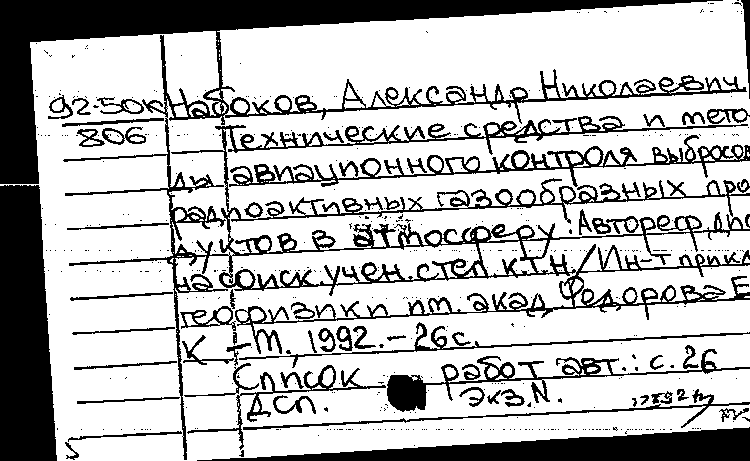 92-50к Набоков, Александр Николаевич
806 Технические средства и мето-
ды авиационного контроля выбросов
радиоактивных газообразных про-
дуктов в атмосферу: Автореф. дис.
на соиск. учен. степ. к.т.н. / Ин-т прикл.
геофизики им. акад. Федорова Е.
К. – М., 1992. – 26 с.
Список работ авт.: с. 26
ДСП. Экз. N.